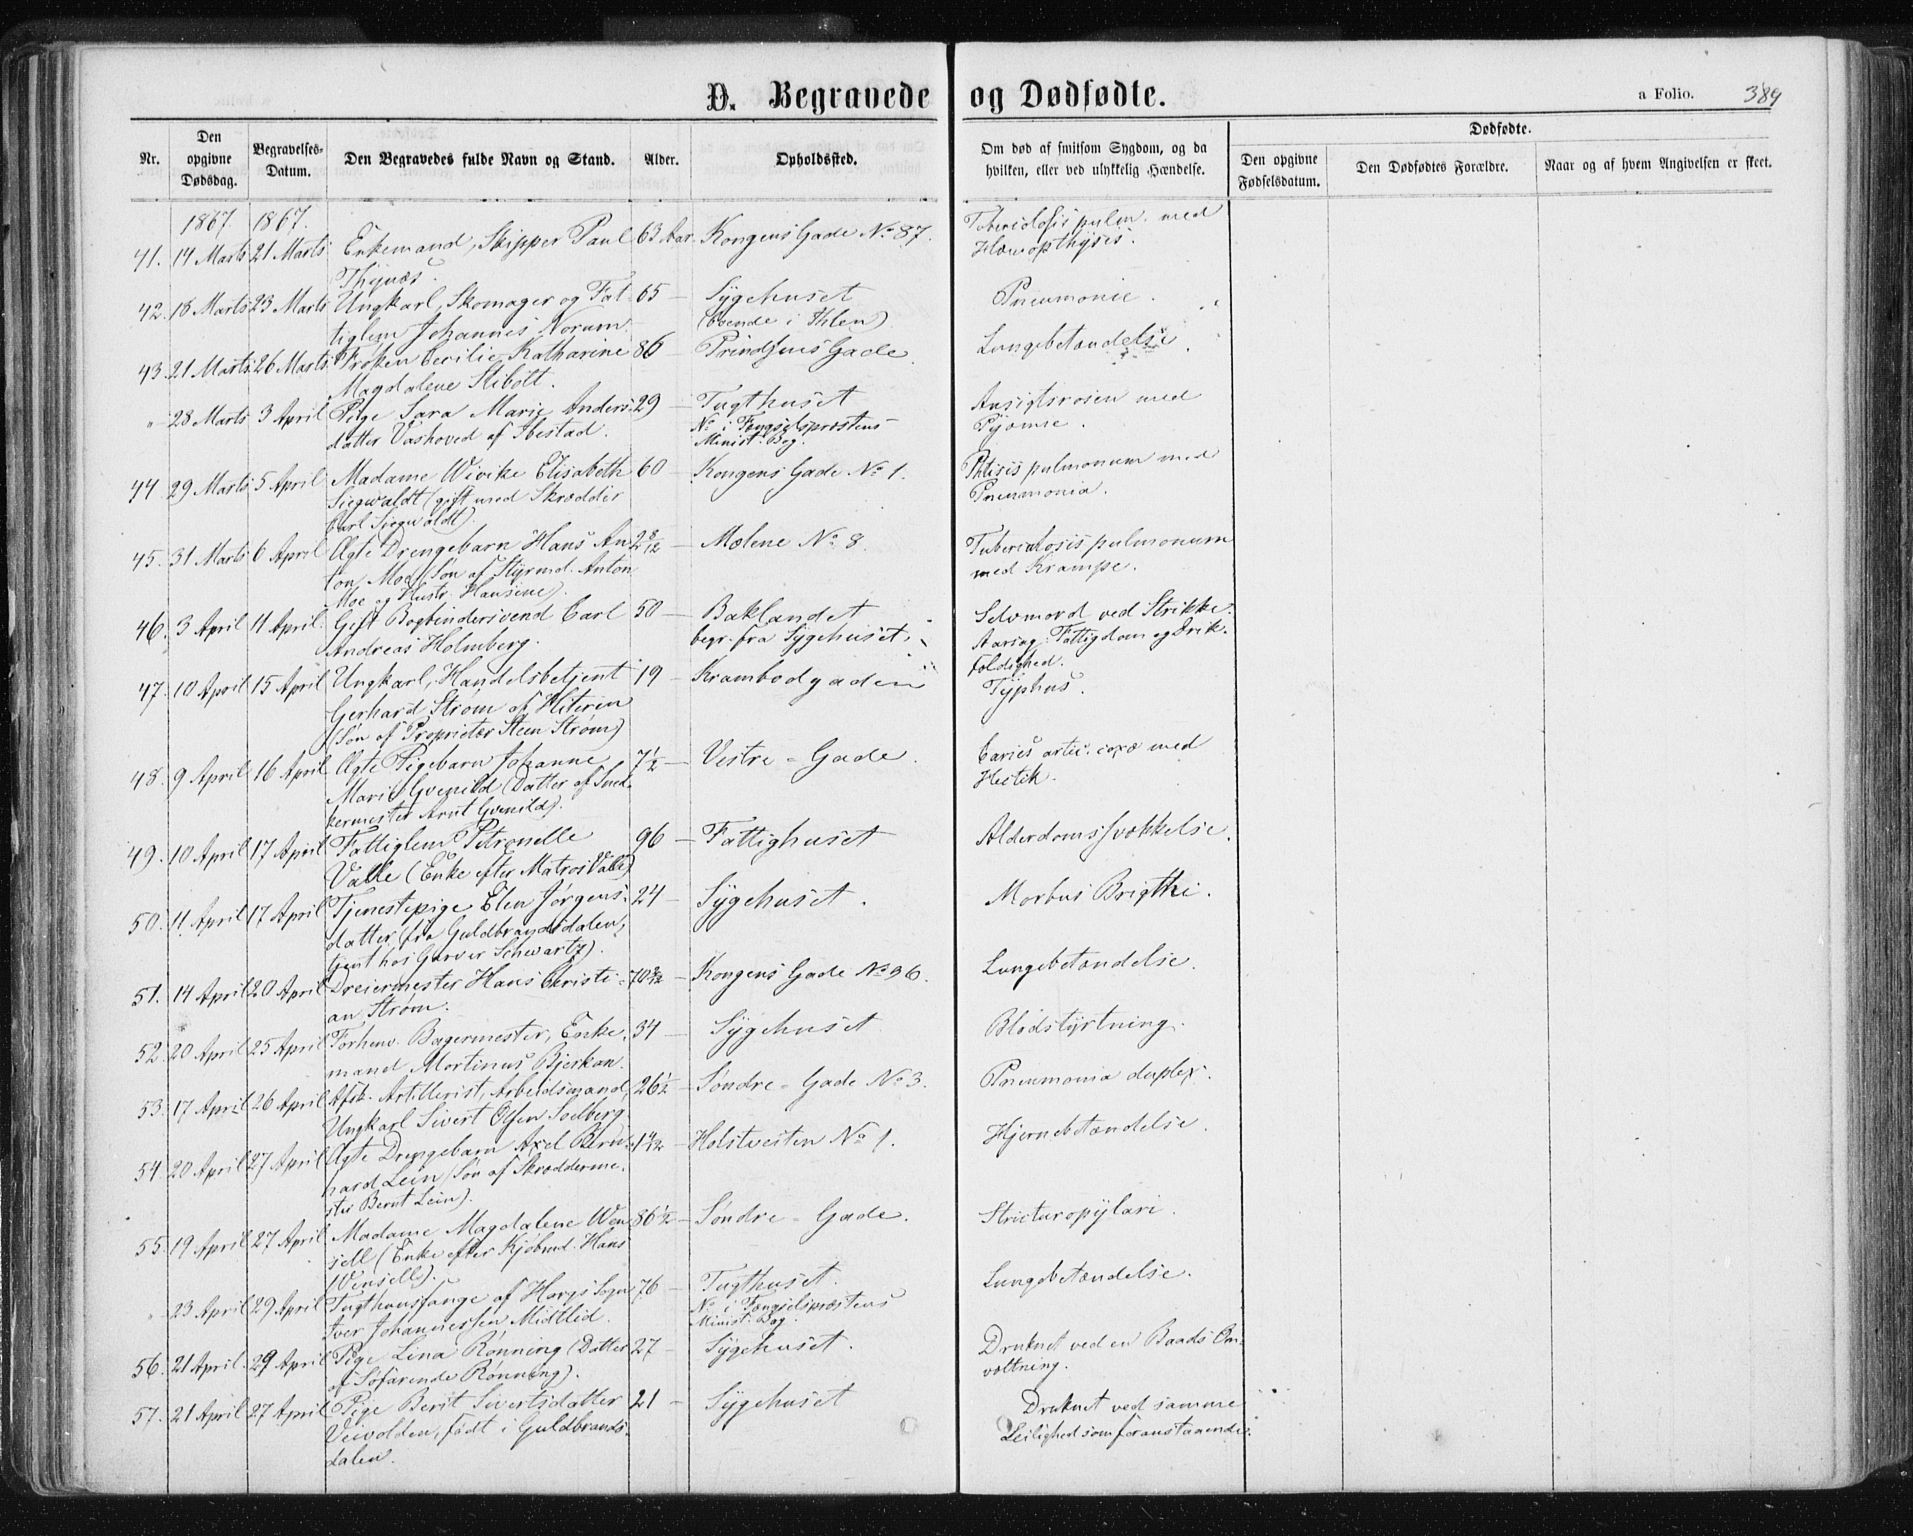 D. Begravede og Dødfødte.
a Folio. 389
Nr.
Den opgivne Dødsdag.
Begravelses-Datum.
Den Begravedes fulde Navn og Stand.
Alder.
Opholdssted.
Om død af smitsom Sygdom, og da hvilken, eller ved ulykkelig Hændelse.
Dødfødte.
Den opgivne Fødselsdatum.
Den Dødfødtes Forældre.
Naar og af hvem Angivelsen er skeet.
1867. 1867.
41. 14 Marts 21 Marts Enkemand, Skipper Paul 63 Aar. Kongens Gade No 87. Tuberculosis pulm. med
Thynæs. Hæmopthysis.
42. 18 Marts 23 Marts Ungkarl, Skomager og Fat- 65 — Sygehuset Pneumonie.
tiglem Johannes Norum. (boende i Ihlen)
43. 21 Marts 26 Marts Frøken Cecilie Katharine 86 — Prindsens Gade. Lungebetændelse.
Magdalene Stibolt.
" 28 Marts 3 April Pige Sara Marie Anders- 29 — Tugthuset Ansigtsrosen med
datter Vashoved af Ibestad. No i Fængselspræstens Pyæmie.
Minist. Bog.
44 29 Marts 5 April Madame Wivike Elisabeth 60 — Kongens Gade No 1. Phtisis pulmonum med
Siegwaldt (gift med Skrædder Pneumonia.
Carl Siegwaldt).
45. 31 Marts 6 April Ægte Drengebarn Hans An- 2 8/12 — Mølene No 8. Tuberculosis pulmonum
ton Moe (Søn af Styrmd. Anton med Krampe.
Moe og Hustr. Hansine).
46. 3 April 11 April. Gift Bogbindersvend Carl 50 — Baklandet Selvmord ved Strikke.
Andreas Holmberg. begr. fra Sygehuset. Aarsag: Fattigdom og Drik-
fældighed.
47. 10 April 15 April Ungkarl, Handelsbetjent 19 — Krambodgaden Typhus.
Gerhard Strøm af Hiteren
(Søn af Proprietær Steen Strøm)
48. 9 April 16 April Ægte Pigebarn Johanne 7 1/2 — Vestre-Gade. Caries artic. coxæ med
Marie Gvenild (Datter af Sned- Hectik.
kermester Arnt Gvenild).
49. 10 April 17 April Fattiglem Petronelle 96 — Fattighuset Alderdomssvækkelse.
Valle (Enke efter Matros Valle)
50. 11 April 17 April Tjenestepige Elen Jørgens- 24 — Sygehuset. Morbus Brigthi.
datter, fra Guldbrandsdalen,
tjent hos Garver Schwartz).
51. 14 April 20 April Dreiermester Hans Christi- 70 9/12 — Kongens Gade No 36. Lungebetændelse.
an Strøm.
52. 20 April 25 April Forhenv. Bagermester, Enke- 34 — Sygehuset Blodstyrtning.
mand Mortinus Bjerkan.
53. 17 April 26 April Afsk. Artillerist, Arbeidsmand, 26 1/2 — Søndre-Gade No 3. Pneumonia duplex.
Ungkarl Sivert Olsen Solberg.
54. 20 April 27 April Ægte Drengebarn Axel Bern- 1 4/12 — Holstvesten No 1. Hjernebetændelse.
hard Lein (Søn af Skrædderme-
ster Bernt Lein).
55. 19 April 27 April Madame Magdalene Wen- 86 1/2 — Søndre-Gade. Strictur. pylori.
sell (Enke efter Kjøbmd. Hans
Wensell).
" 23 April 29 April Tugthusfange af Horgs Sogn 76 — Tugthuset. Lungebetændelse.
Iver Johannessen Midtlid. No i Fængselspræstens
Minist. Bog.
56. 21 April 29 April Pige Lina Rønning (Datter 27 — Sygehuset. Druknet ved en Baads Om-
af Søfarende Rønning). væltning.
57. 21 April 27 April Pige Berit Sivertsdatter 21 — Sygehuset Druknet ved samme
Veivolden, født i Guldbrands- Leilighed som foranstaaende.
dalen.